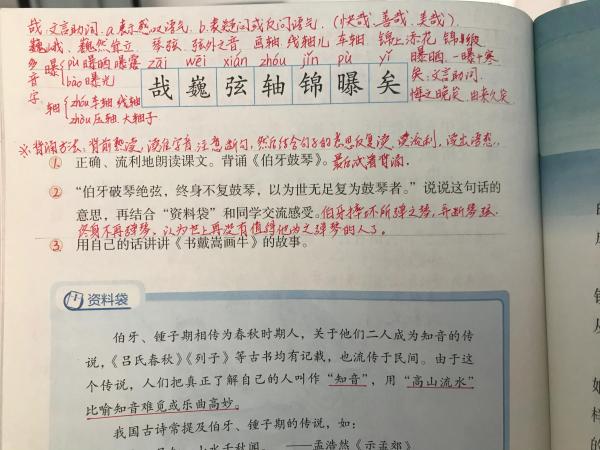 哉:文言助词. a.表示感叹语气. b.表疑问或反问语气. (快哉、善哉、美哉)
巍峨、巍然耸立 琴弦、弦外之音 画轴、线轴儿 车轴 锦上添花 锦
多音字 曝 pù 曝晒 曝露 zāi wēi xián zhóu jǐn pù yǐ 曝晒、一曝十寒
bào 曝光 哉 巍 弦 轴 锦 曝 矣 矣:文言助词.
轴 zhóu 车轴 线轴 悔之晚矣、由来久矣
zhòu 压轴、大轴子
※背诵方法:背前熟读,读准字音,注意断句,然后结合句子的意思反复读,读流利,读出语感.
① 正确、流利地朗读课文。背诵《伯牙鼓琴》。最后试着背诵.
② “伯牙破琴绝弦,终身不复鼓琴,以为世无足复为鼓琴者。”说说这句话的
意思,再结合“资料袋”和同学交流感受。伯牙摔坏所弹之琴,弄断琴弦.
终身不再弹琴,认为世上再没有值得他为之弹琴的人了。
③ 用自己的话讲讲《书戴嵩画牛》的故事。
资料袋
伯牙、锺子期相传为春秋时期人,关于他们二人成为知音的传
说,《吕氏春秋》《列子》等古书均有记载,也流传于民间。由于这
个传说,人们把真正了解自己的人叫作“知音”,用“高山流水”
比喻知音难觅或乐曲高妙。
我国古诗常提及伯牙、锺子期的传说,如:
——孟浩然《示孟郊》